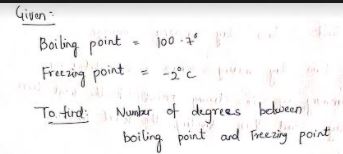 Given :-
Boiling point = 100.7°
Freezing point = -2°C
To find: Number of degrees between
boiling point and freezing point